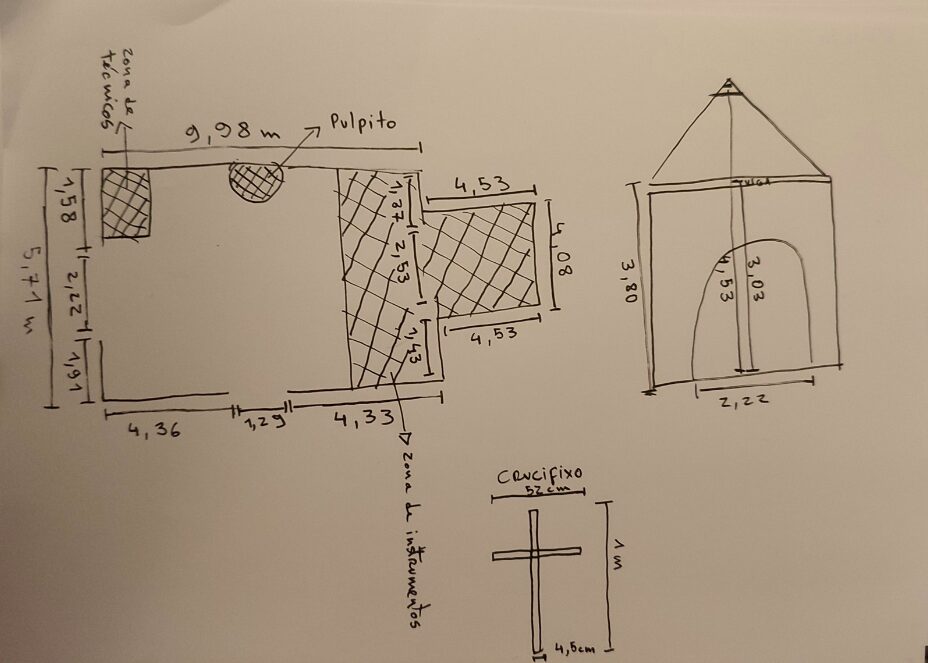 zona de
técnicos
9,98 m
Pulpito
1,58
5,71 m
2,22
1,91
1,27
2,53
1,43
4,53
4,08
4,53
4,36
1,29
4,33
zona de instrumentos
VIGA
3,80
4,53
3,03
2,22
CRUCIFIXO
52 cm
1 m
4,5cm